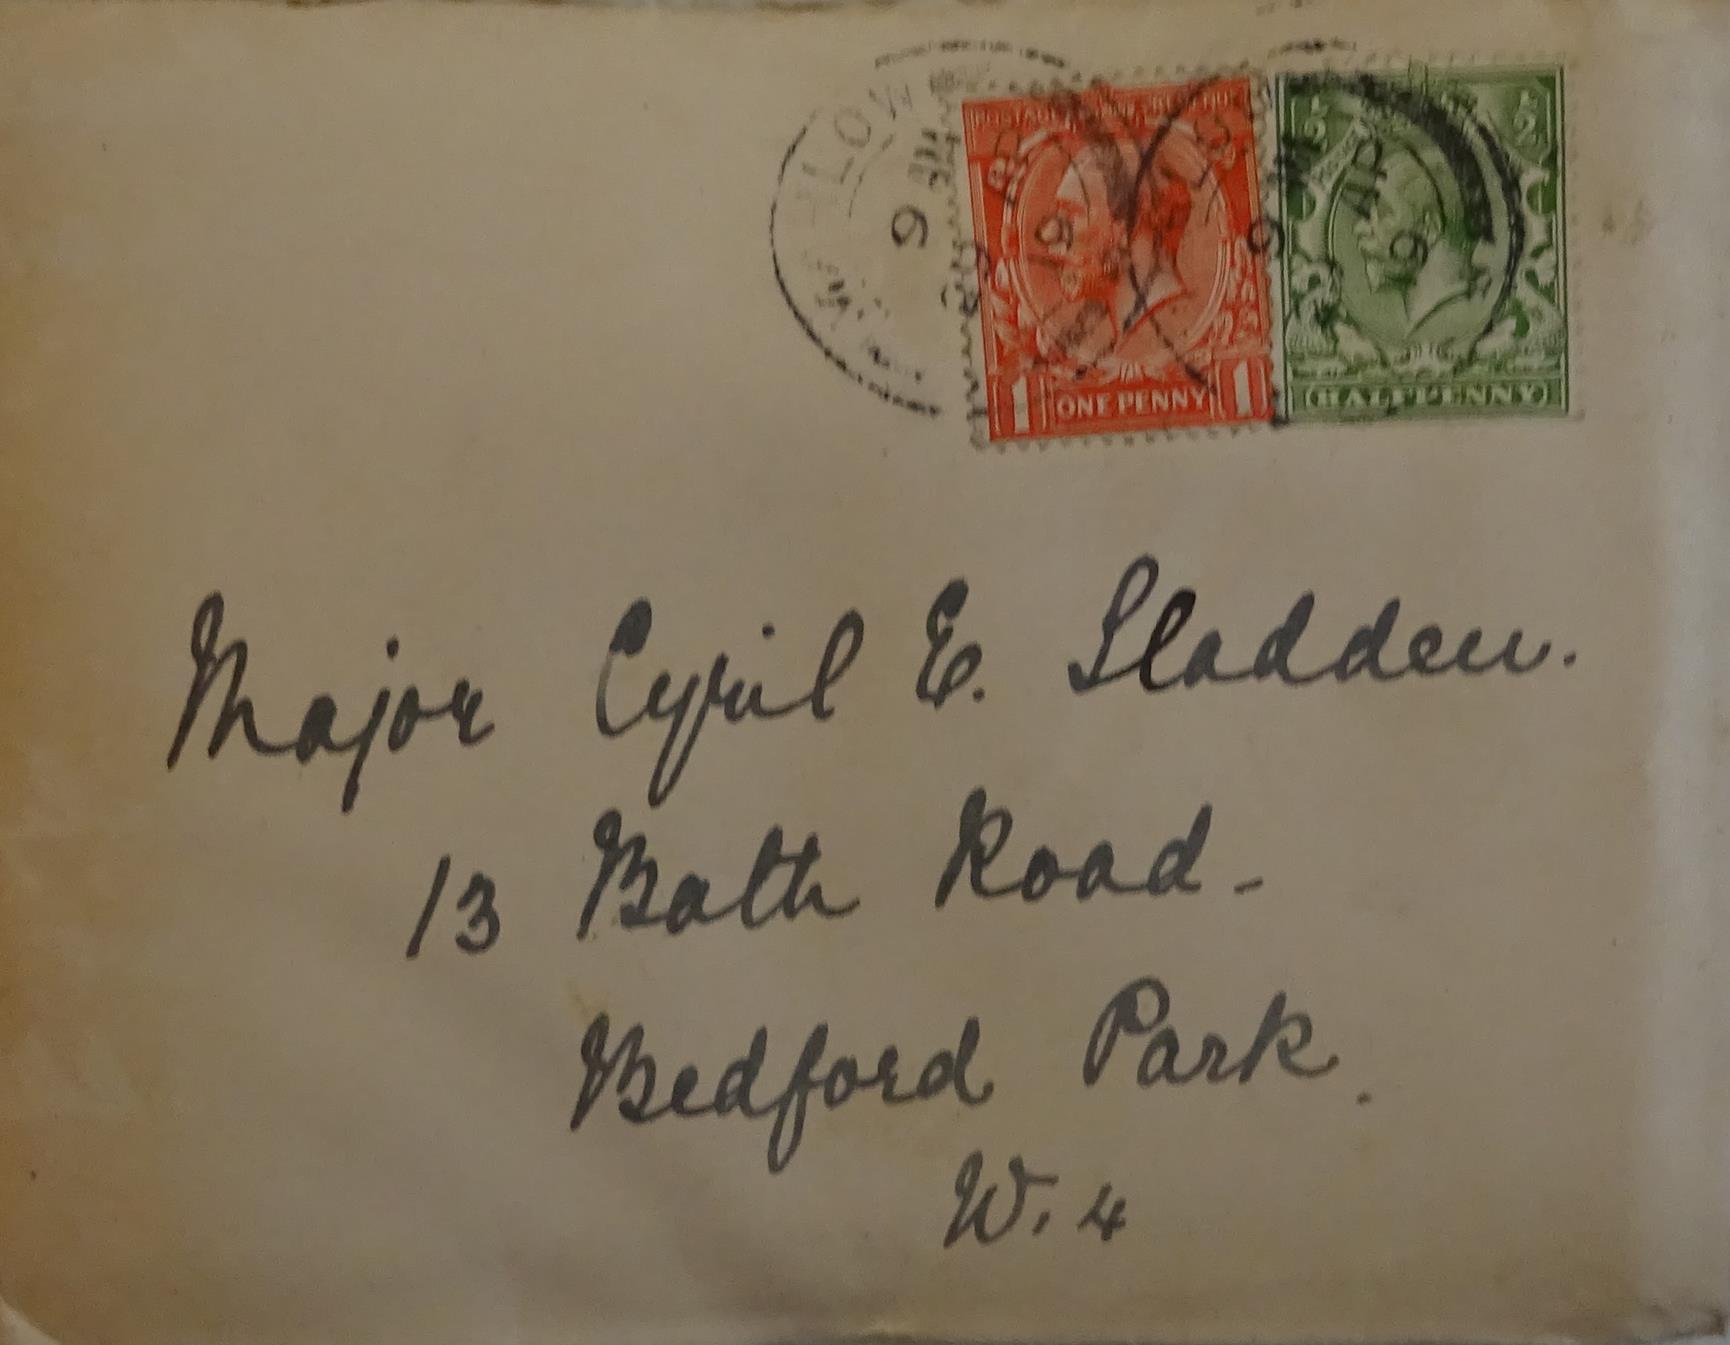 POSTAGE
½ ½
AP
19
1 ONE PENNY 1
HALFPENNY
Major Cyril E. Sladden.
13 Bath Road -
Bedford Park.
W. 4